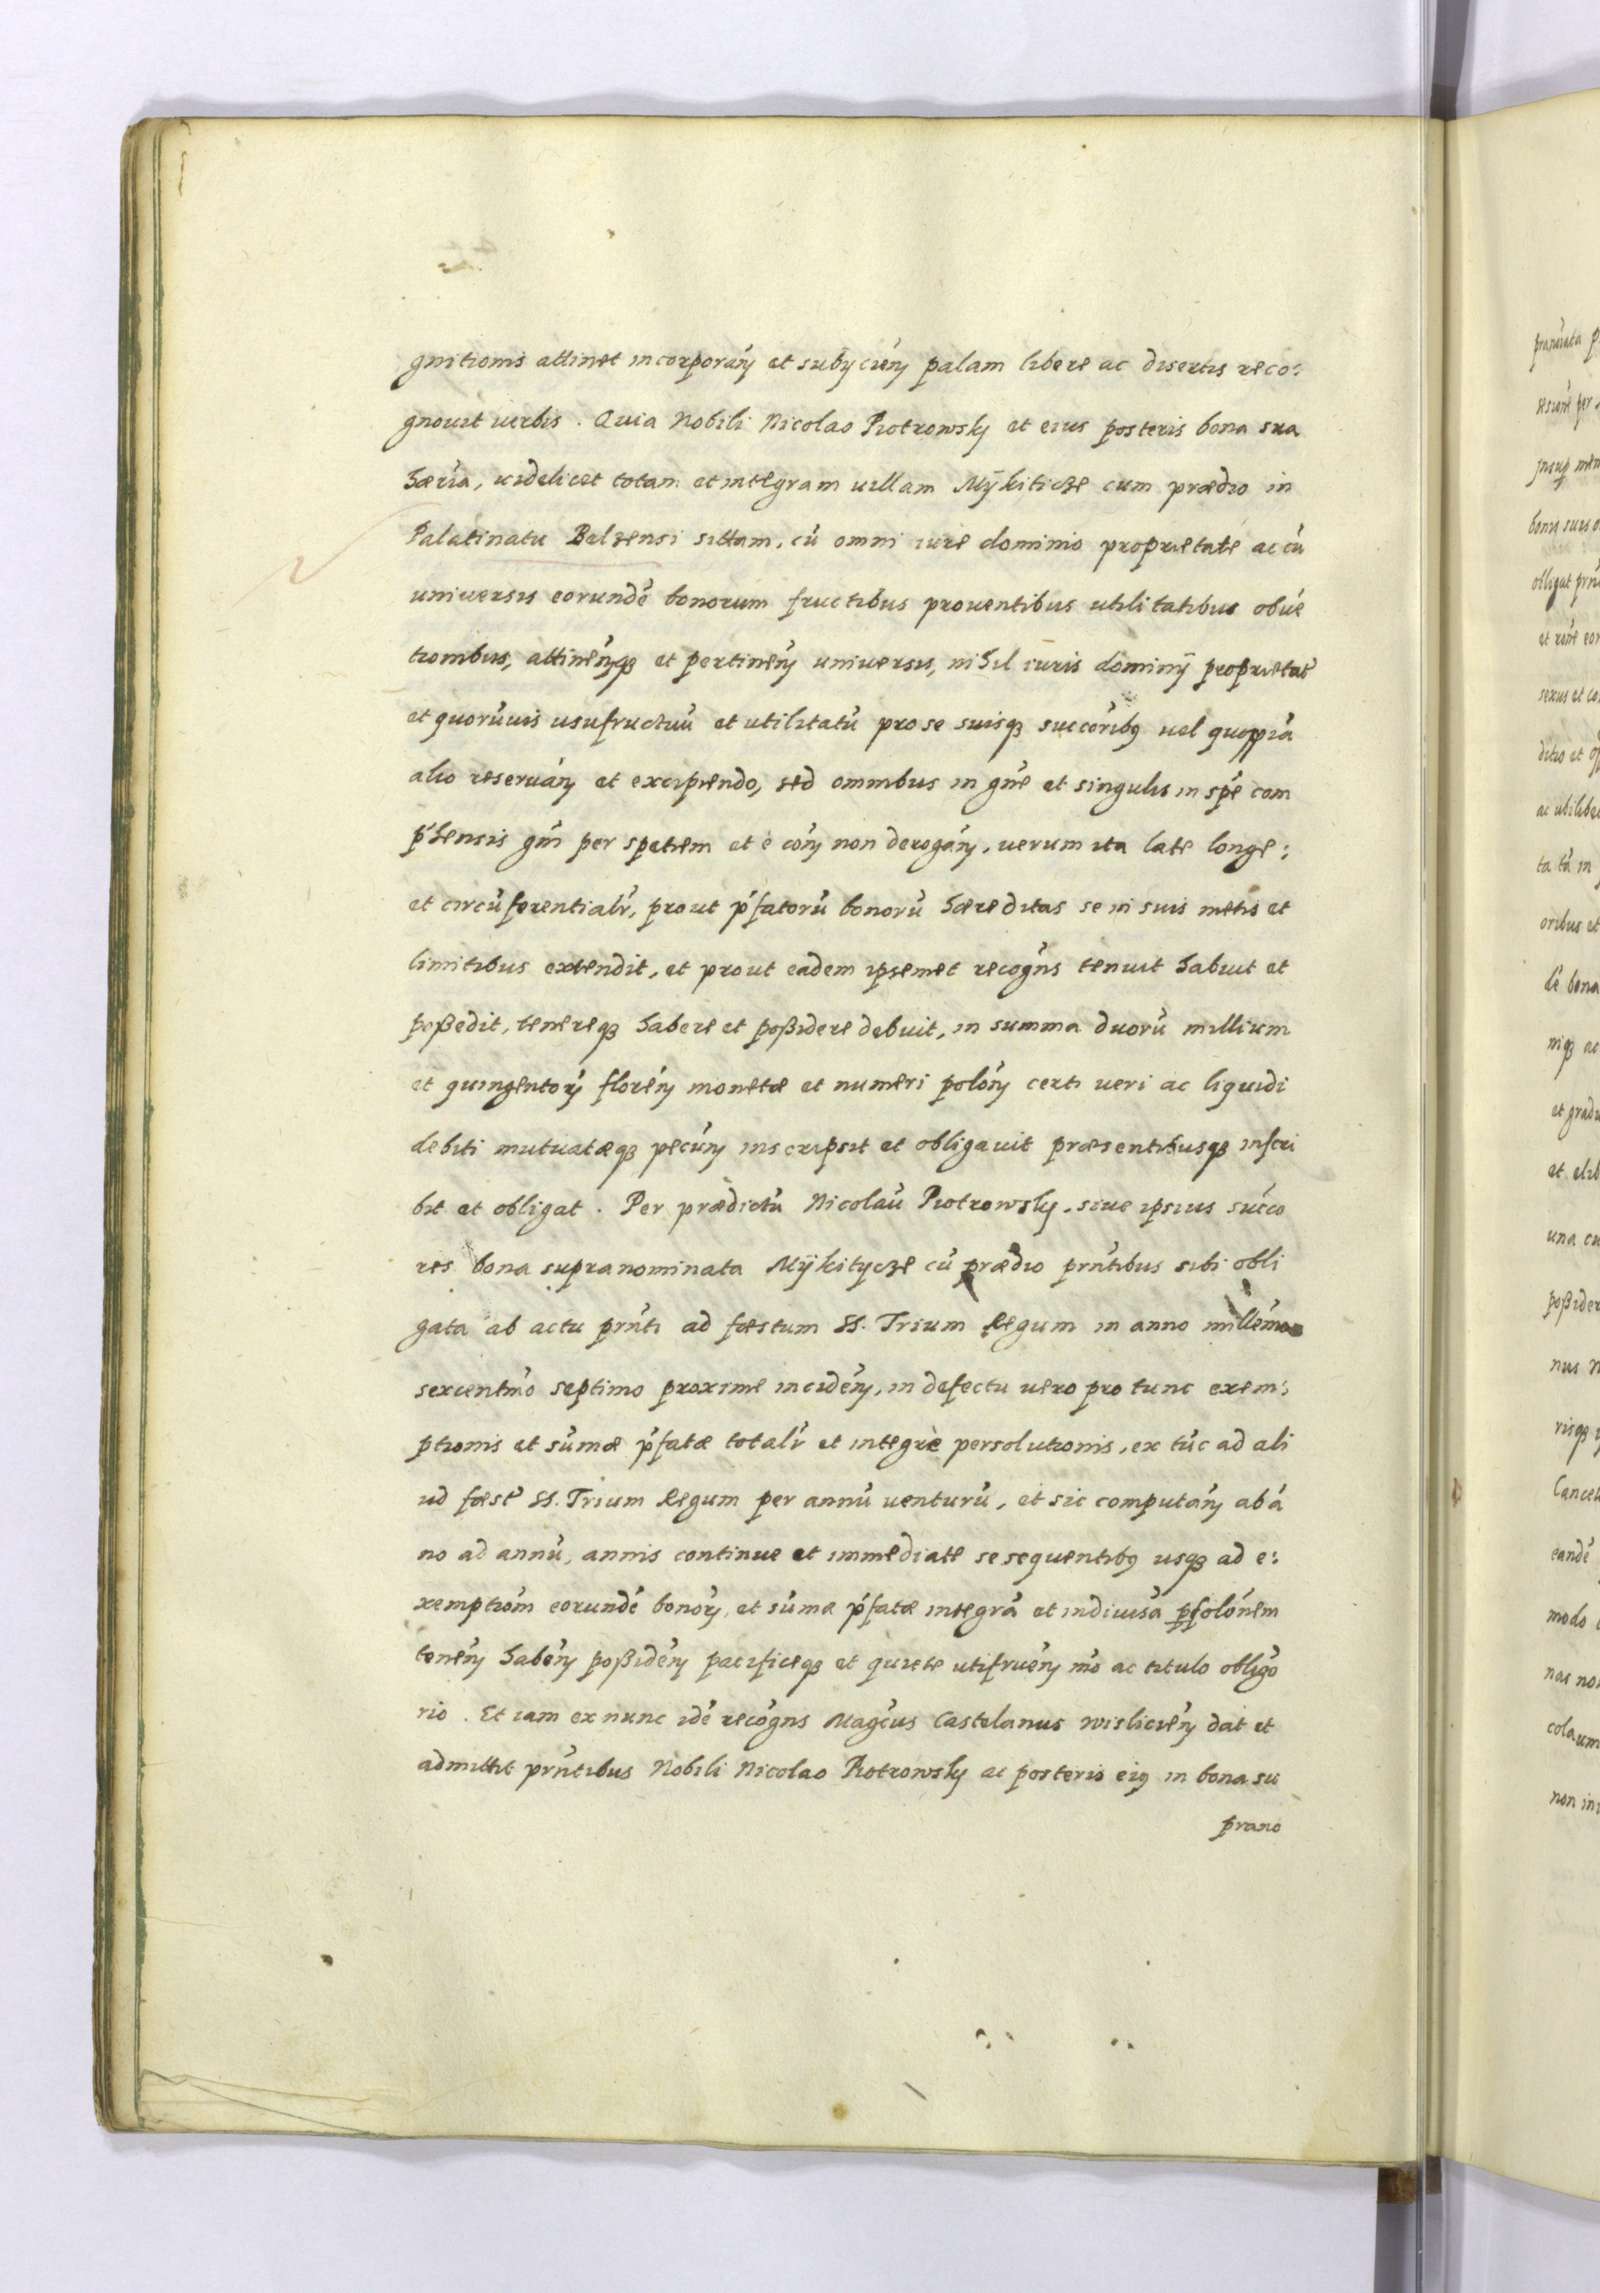 gnitionis attinet incorporań et subÿcień palam libere ac disertis reco:
gnouit verbis. Quia Nobili Nicolao Piotrowsky et eius posteris bona sua
hæría, videlicet totam et integram villam Mÿkiticze cum prædio in
Palatinatu Belzensi sittam, cū omni iure dominio proprietate ac cū
universis eorundē bonorum fructibus proventibus utilitatibus obvē
tionibus, attinenńqȝ et pertineń universis, nihil iuris dominÿ proprietat́
et quorūvis usufructuū et utilitatū pro se suisqȝ succōribȝ vel quoppiā
alio reservań et excipiendo, sed omnibus in gn̄e et singulis in sp̄e com
p̄hensis gn̄i per spetiem et è cōn non derogań, verum ita late longe:
et circūferentialr̄, prout p̄fatorū bonorū hæreditas se in suis metis et
limitibus extendit, et prout eadem ipsemet recogn̄s tenuit habuit et
poßedit, tenereqȝ habere et poßidere debuit, in summa duorū millium
et quingentoŕ floreń monetæ et numeri polóń certi veri ac liquidi
debiti mutuatæqȝ pecuń inscripsit et obligavit præsentibusqȝ inscri
bit et obligat. Per prædictū Nicolaū Piotrowsky, sive ipsius succo
res bona supranominata Mÿkitycze cū prædio prn̄tibus sibi obli
gata ab actu prn̄ti ad fæstum SS. Trium Regum in anno millēmo
sexcentm̄o septimo proxime incideń, in defectu vero pro tunc exem:
ptionis et sūmæ p̄fatæ totalr̄ et integrè persolutionis, ex tūc ad ali
ud fæst́ SS. Trium Regum per annū venturū, et sic computań ab ā
no ad annū, annis continue et immediate se sequentibȝ usqȝ ad e:
xemptiōm eorundē bonoŕ, et sūmæ p̄fatæ integrā et indivisā p̱solōnem
teneń habeń poßideń pacificeqȝ et quiete utifrueń m̄o ac titulo obligō
rio. Et iam ex nunc idē recogn̄s Magćus Castelanus Wisliceń dat et
admittit prn̄tibus Nobili Nicolao Piotrowsky ac posteris eiȝ in bona su
prano